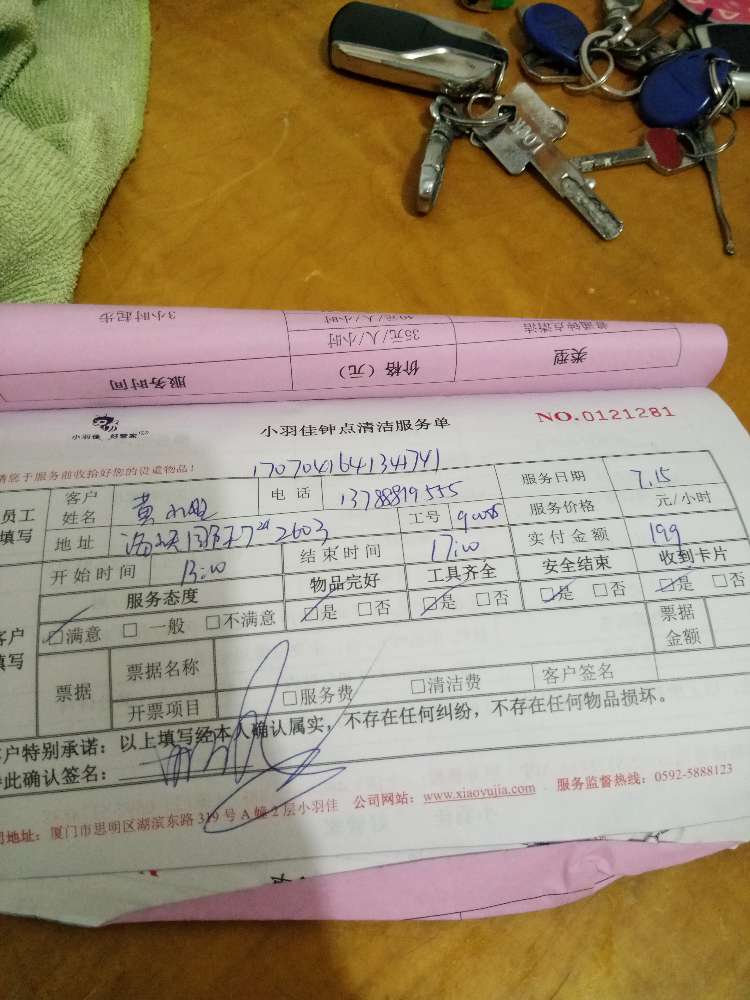 3小时起步
35元/人/小时
普通钟点清洁
服务时间
价格（元）
类型
小羽佳 好管家
小羽佳钟点清洁服务单
NO.0121281
请您于服务前收拾好您的贵重物品！
170704164134741
员工 客户 姓名 黄 电话 13788819555 服务日期 7.15
填写 地址 2603 工号 服务价格 元/小时
开始时间 13:00 结束时间 17:00 实付金额 199
服务态度 物品完好 工具齐全 安全结束 收到卡片
客户 填写 ☑满意 □一般 □不满意 ☑是 □否 ☑是 □否 ☑是 □否 ☑是 □否
票据 票据名称 票据金额
开票项目 □服务费 □清洁费 客户签名
客户特别承诺：以上填写经本人确认属实，不存在任何纠纷，不存在任何物品损坏。
此确认签名：
地址：厦门市思明区湖滨东路319号A幢2层小羽佳 公司网站：www.xiaoyujia.com 服务监督热线：0592-5888123